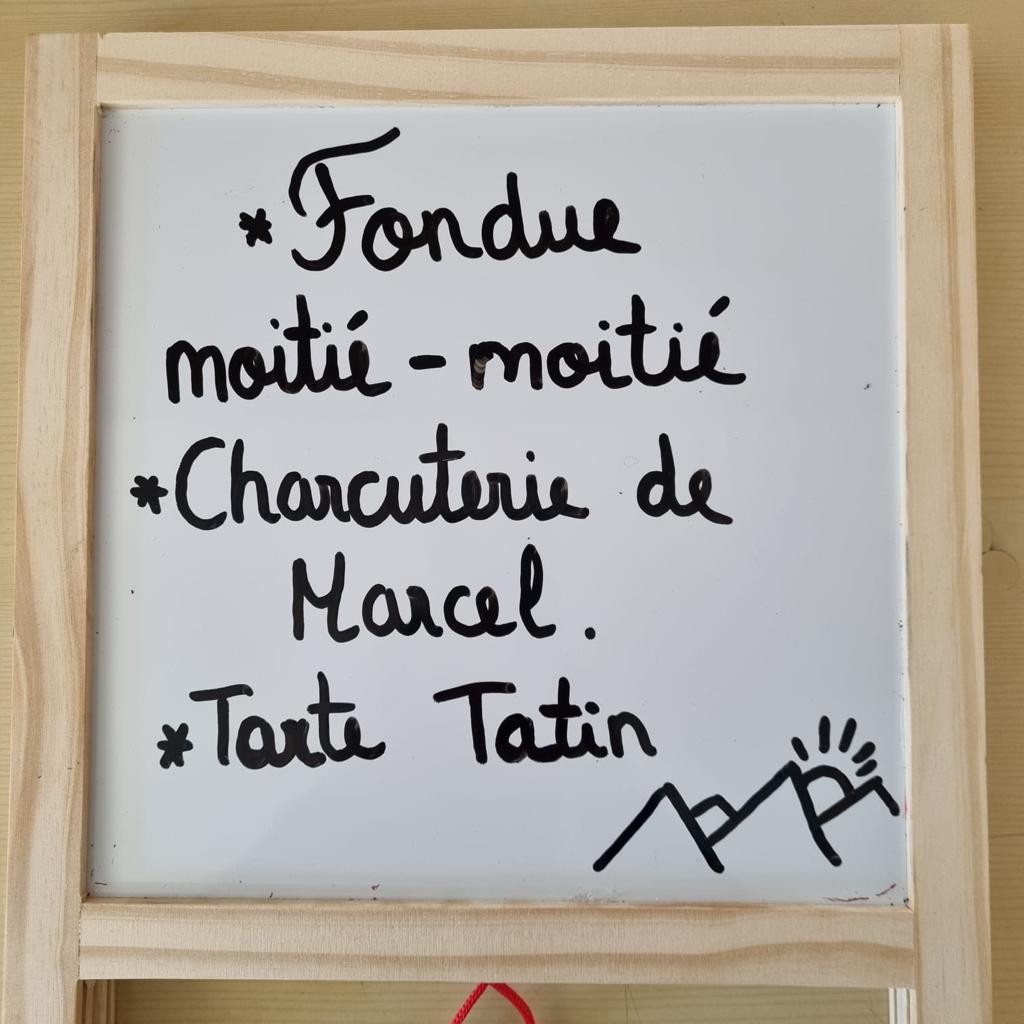 * Fondue
moitié - moitié
* Charcuterie de
Marcel.
* Tarte Tatin